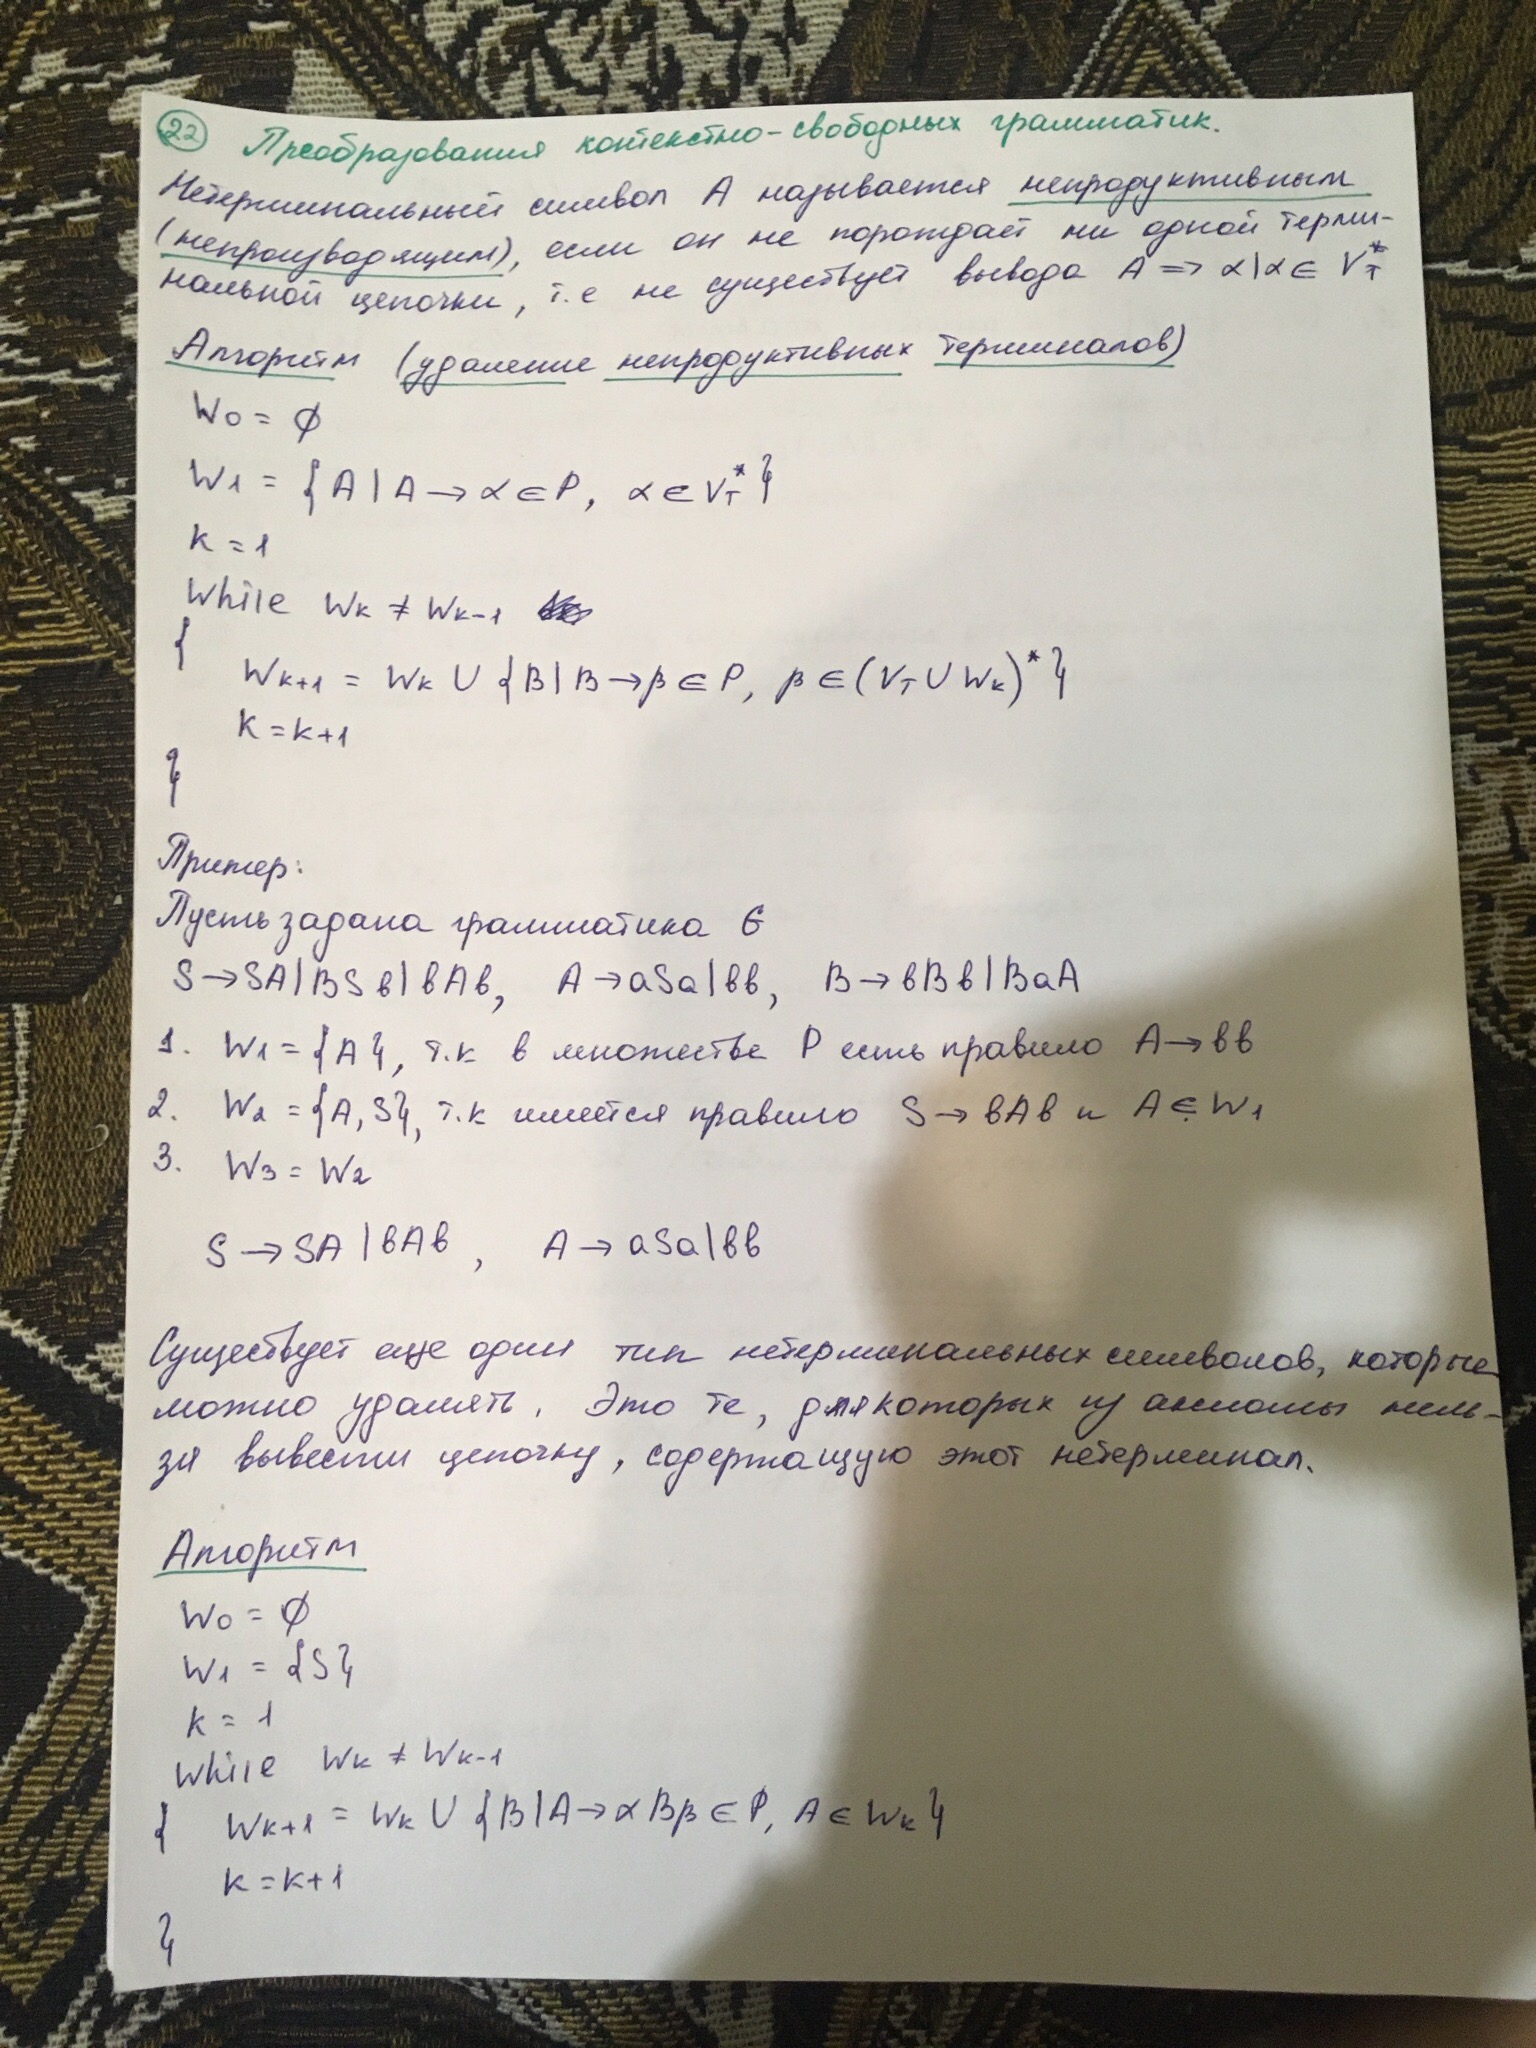 22 Преобразования контекстно-свободных грамматик.
Нетерминальный символ A называется непродуктивным
(непроизводящим), если он не порождает ни одной терми-
нальной цепочки, т.е не существует вывода A ⇒ α|α ∈ V_T^*
Алгоритм (удаление непродуктивных терминалов)
W0 = ∅
W1 = {A | A → α ∈ P, α ∈ V_T^*}
k = 1
While Wk ≠ Wk-1
{
Wk+1 = Wk ∪ {B | B → β ∈ P, β ∈ (V_T ∪ Wk)^*}
k = k+1
}
Пример:
Пусть задана грамматика G
S → SA | BSв | вAв, A → aSa | вв, B → вBв | BaA
1. W1 = {A}, т.к в множестве P есть правило A → вв
2. W2 = {A, S}, т.к имеется правило S → вAв и A ∈ W1
3. W3 = W2
S → SA | вAв , A → aSa | вв
Существует еще один тип нетерминальных символов, которые
можно удалять. Это те, для которых из аксиомы нель-
зя вывести цепочку, содержащую этот нетерминал.
Алгоритм
W0 = ∅
W1 = {S}
k = 1
While Wk ≠ Wk-1
{ Wk+1 = Wk ∪ {B | A → αBβ ∈ P, A ∈ Wk}
k = k+1
}